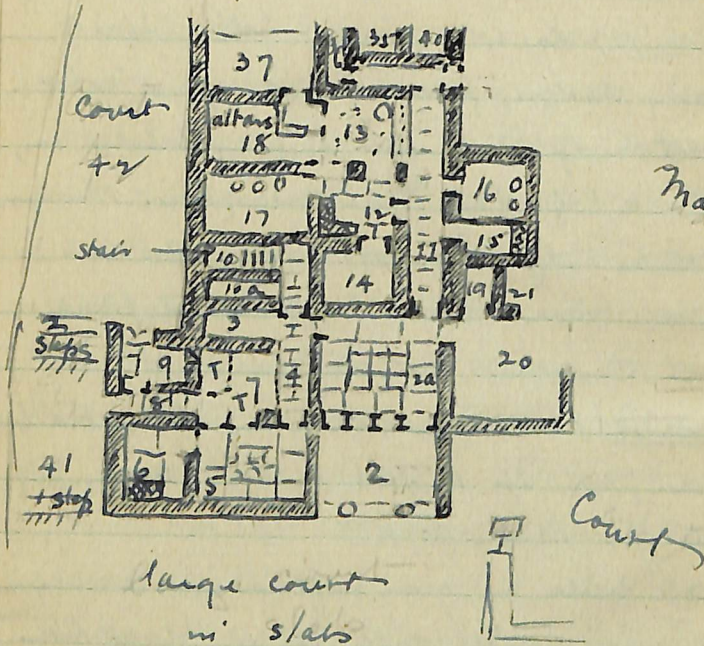 37
31
40
Court
altars
18
13
42
16
17
12
T
stair
10
15
11
14
10a
19
21
3
I
2
steps
T
9
T
7
4
2a
20
8
T
41
6
5
2
+ step
Court
large court
in slabs